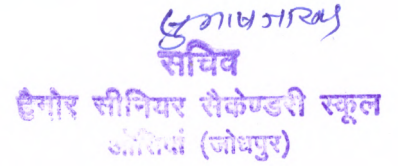 सचिव
टैगोर सीनियर सैकेण्डरी स्कूल
ओसियां (जोधपुर)